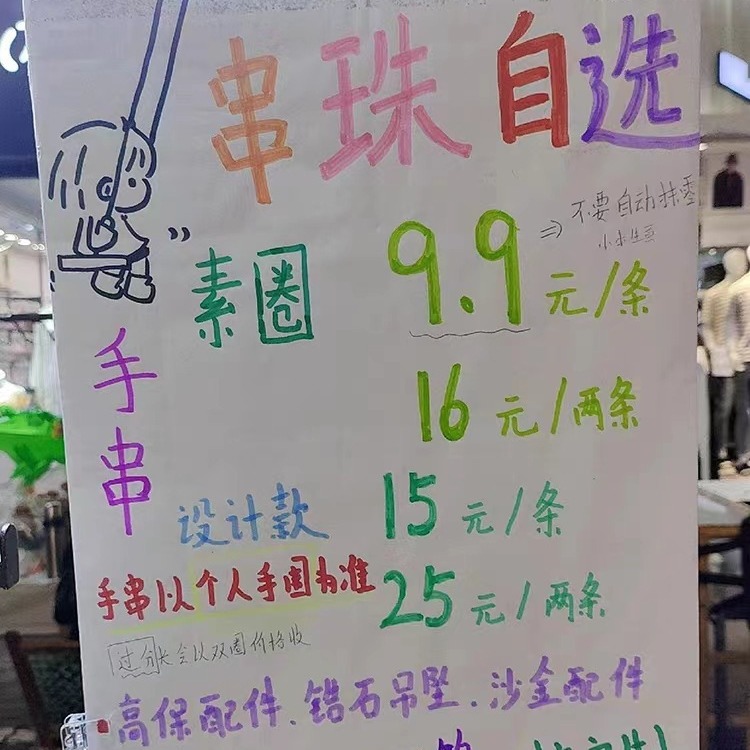 串珠自选
素圈 9.9元/条 ⇒ 不要自动抹零
手串
16元/两条
设计款 15元/条
手串以个人手围为准 25元/两条
过分长会以双圈价格收
高保配件、锆石吊坠、沙金配件